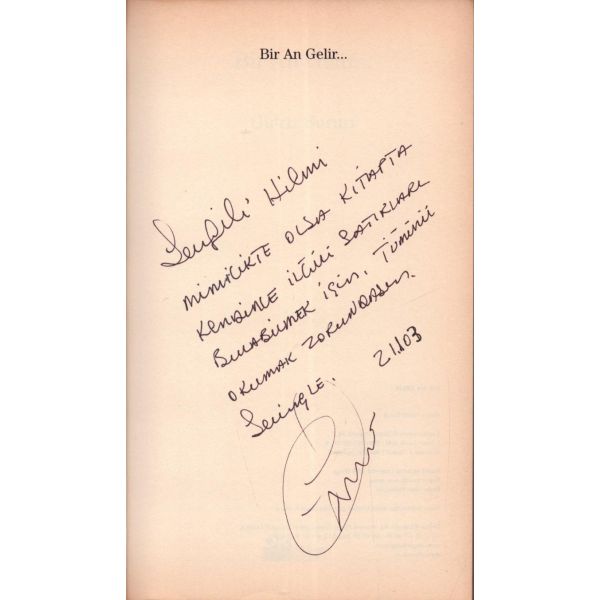 Bir An Gelir...
Sevgili Hilmi
MİNİCİKTE OLSA KİTAPTA
KENDİNLE İLGİLİ SATIRLARI
BULABİLMEK İÇİN, TÜMÜNÜ
OKUMAK ZORUNDASIN.
Sevgiyle. 21.1.03